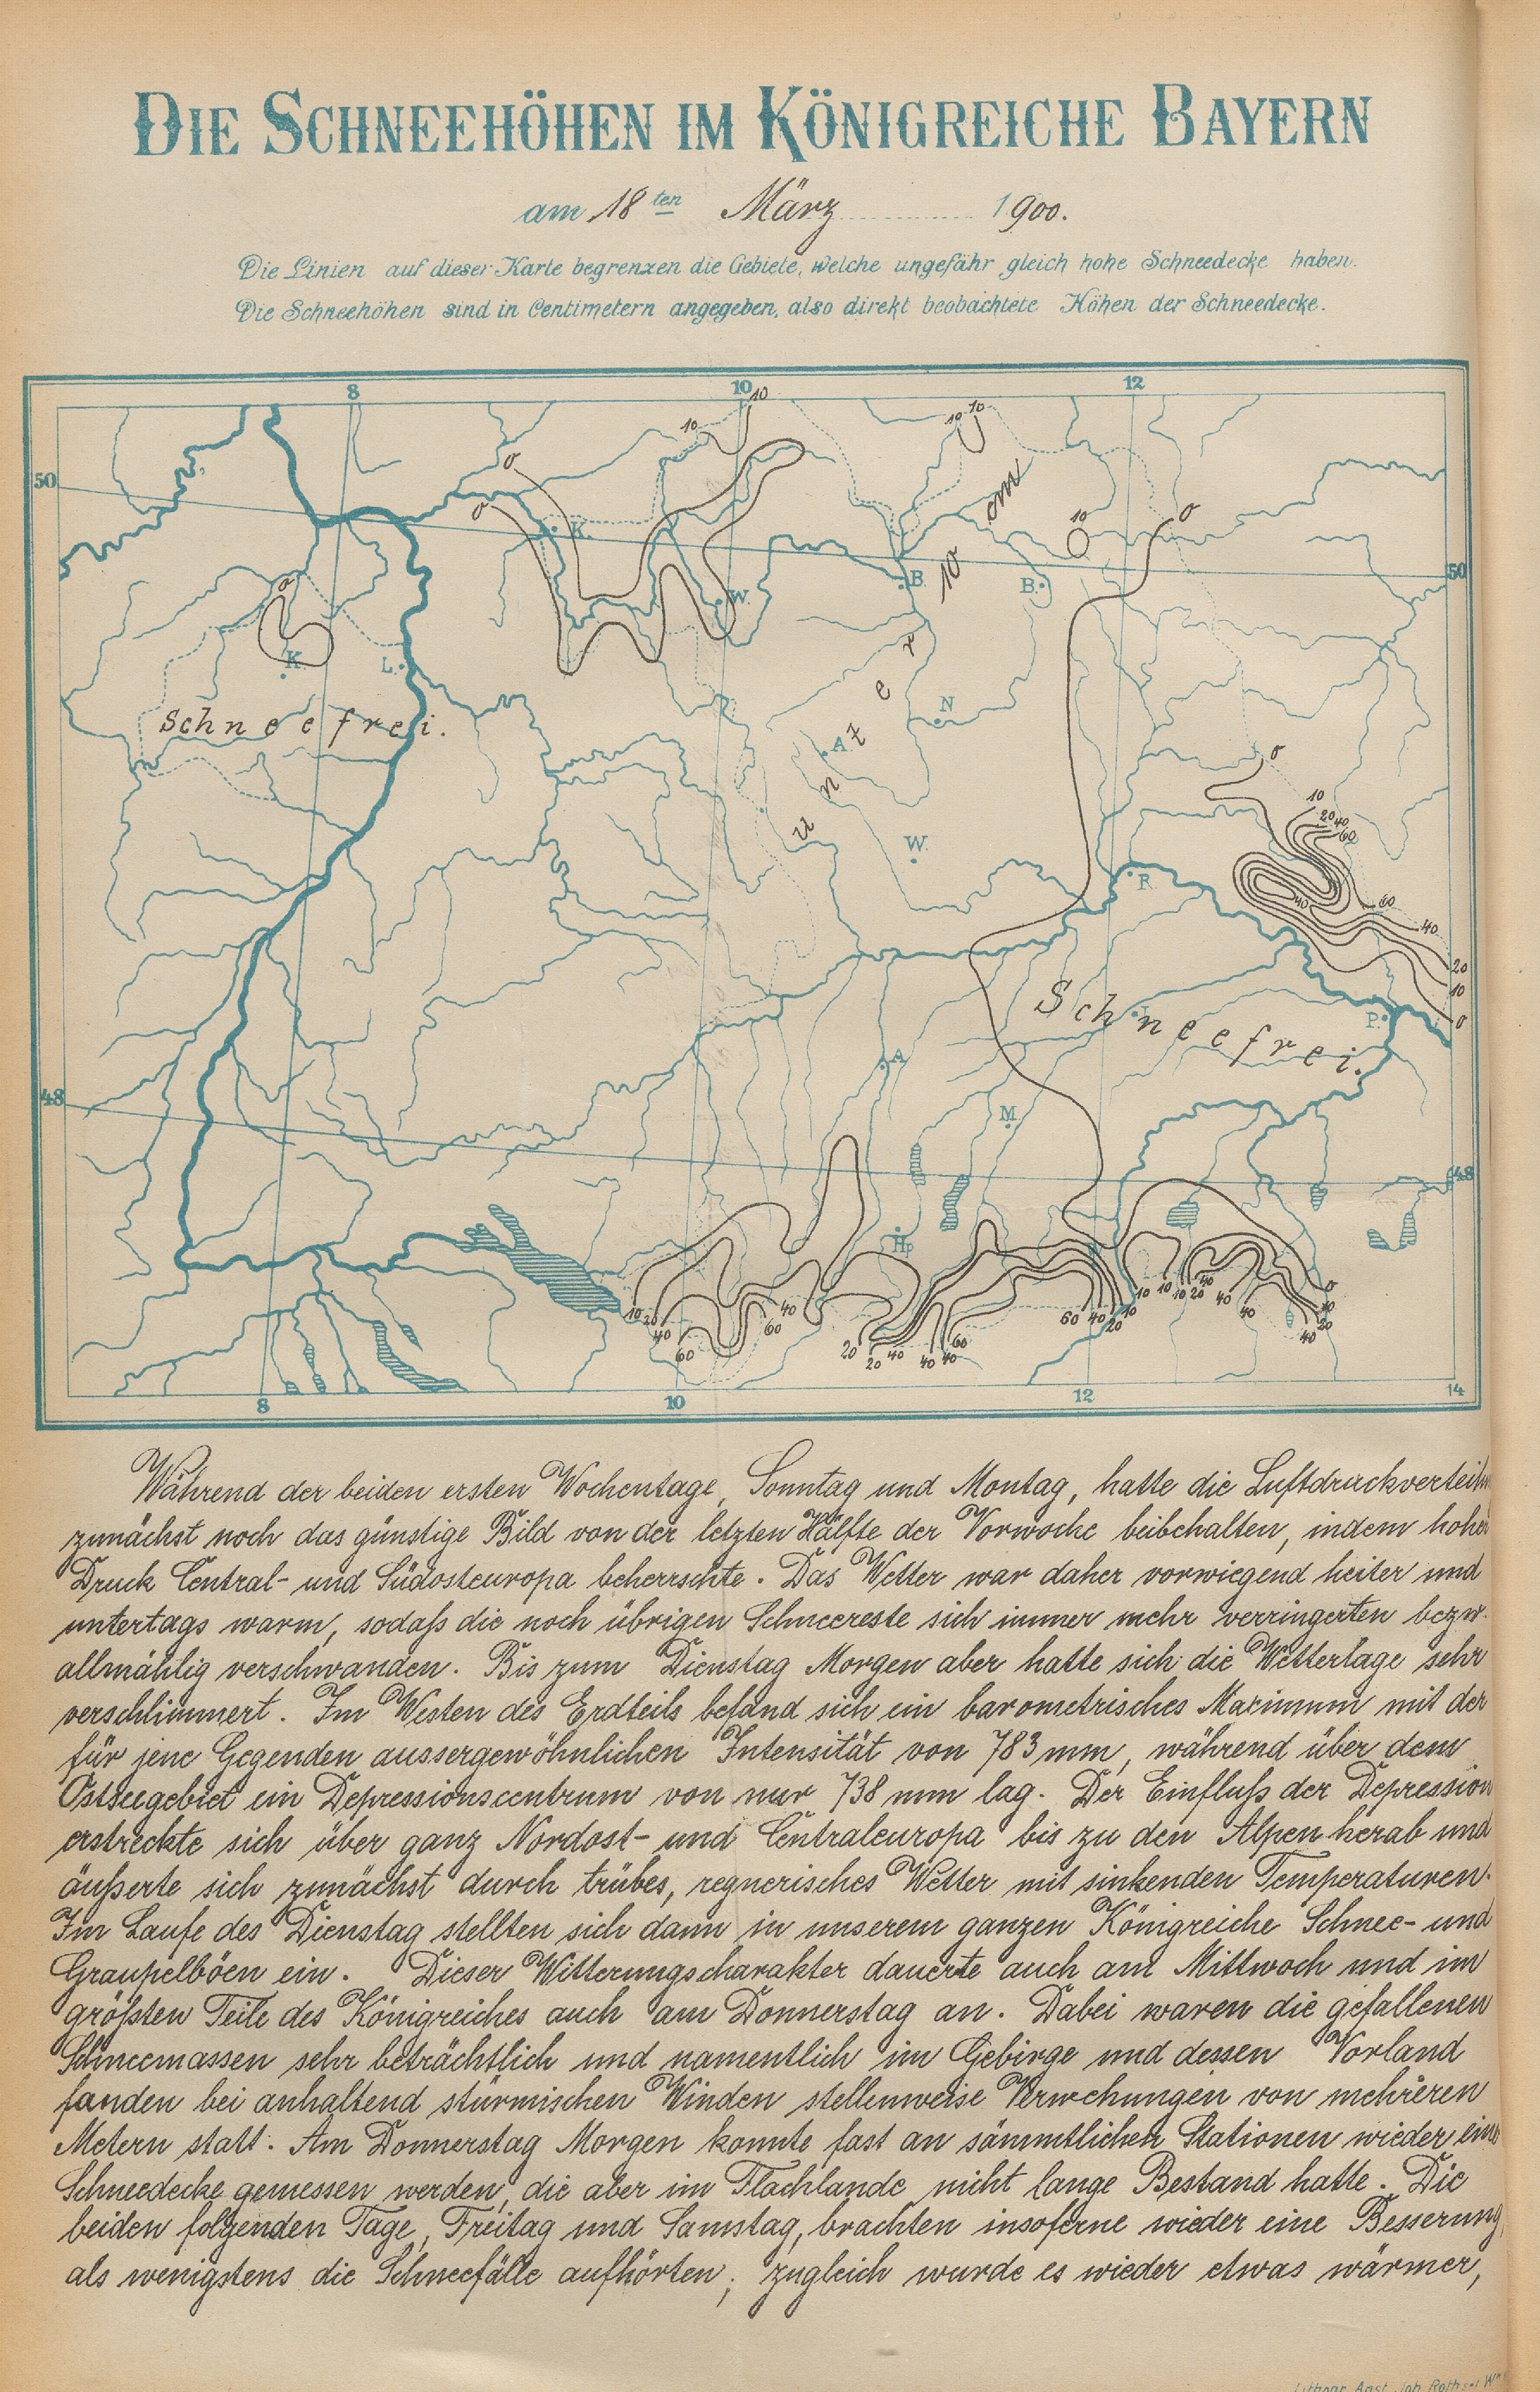 DIE SCHNEEHÖHEN IM KÖNIGREICHE BAYERN
am 18ten März 1900.
Die Linien auf dieser Karte begrenzen die Gebiete, welche ungefähr gleich hohe Schneedecke haben.
Die Schneehöhen sind in Centimetern angegeben, also direkt beobachtete Höhen der Schneedecke.
8 10 12
10
10
10 10
50
0
0
K.
10
0
cm
10
50
B.
B.
W.
0
K
L.
Schneefrei.
unter
N
A
0
10
20 40
60
W.
R.
40
60
40
20
10
0
Schneefrei.
P.
A
48
M
48
Hp
10 20
40
60
40
60
20
20 40
40 40
60
60 40
20
10
10 10 10 20
40
40
40
0
10
20
40
8 10 12 14
Während der beiden ersten Wochentage, Sonntag und Montag, hatte die
zunächst noch das günstige Bild von der letzten Hälfte der Vorwoche beibehalten, indem hoher
Druck Central- und Südosteuropa beherrschte. Das Wetter war daher vorwiegend heiter und
untertags warm, sodaß die noch übrigen Schneereste sich immer mehr verringerten bezw.
allmählig verschwanden. Bis zum Dienstag Morgen aber hatte sich die Wetterlage sehr
verschlimmert. Im Westen des Erdteils befand sich ein barometrisches Maximum mit der
für jene Gegenden aussergewöhnlichen Intensität von 783 mm, während über dem
Ostseegebiet ein Depressionscentrum von nur 738 mm lag. Der Einfluß der Depression
erstreckte sich über ganz Nordost- und Centraleuropa bis zu den Alpen herab und
äußerte sich zunächst durch trübes, regnerisches Wetter mit sinkenden Temperaturen.
Im Laufe des Dienstag stellten sich dann in unserem ganzen Königreiche Schnee- und
Graupelböen ein. Dieser Witterungscharakter dauerte auch am Mittwoch und im
größten Teile des Königreiches auch am Donnerstag an. Dabei waren die gefallenen
Schneemassen sehr beträchtlich und namentlich im Gebirge und dessen Vorland
fanden bei anhaltend stürmischen Winden stellenweise Verwehungen von mehreren
Metern statt. Am Donnerstag Morgen konnte fast an sämmtlichen Stationen wieder eine
Schneedecke gemessen werden, die aber im Flachlande nicht lange Bestand hatte. Die
beiden folgenden Tage, Freitag und Samstag, brachten insoferne wieder eine Besserung,
als wenigstens die Schneefälle aufhörten; zugleich wurde es wieder etwas wärmer,
Lithogr. Anst. Joh. Roth